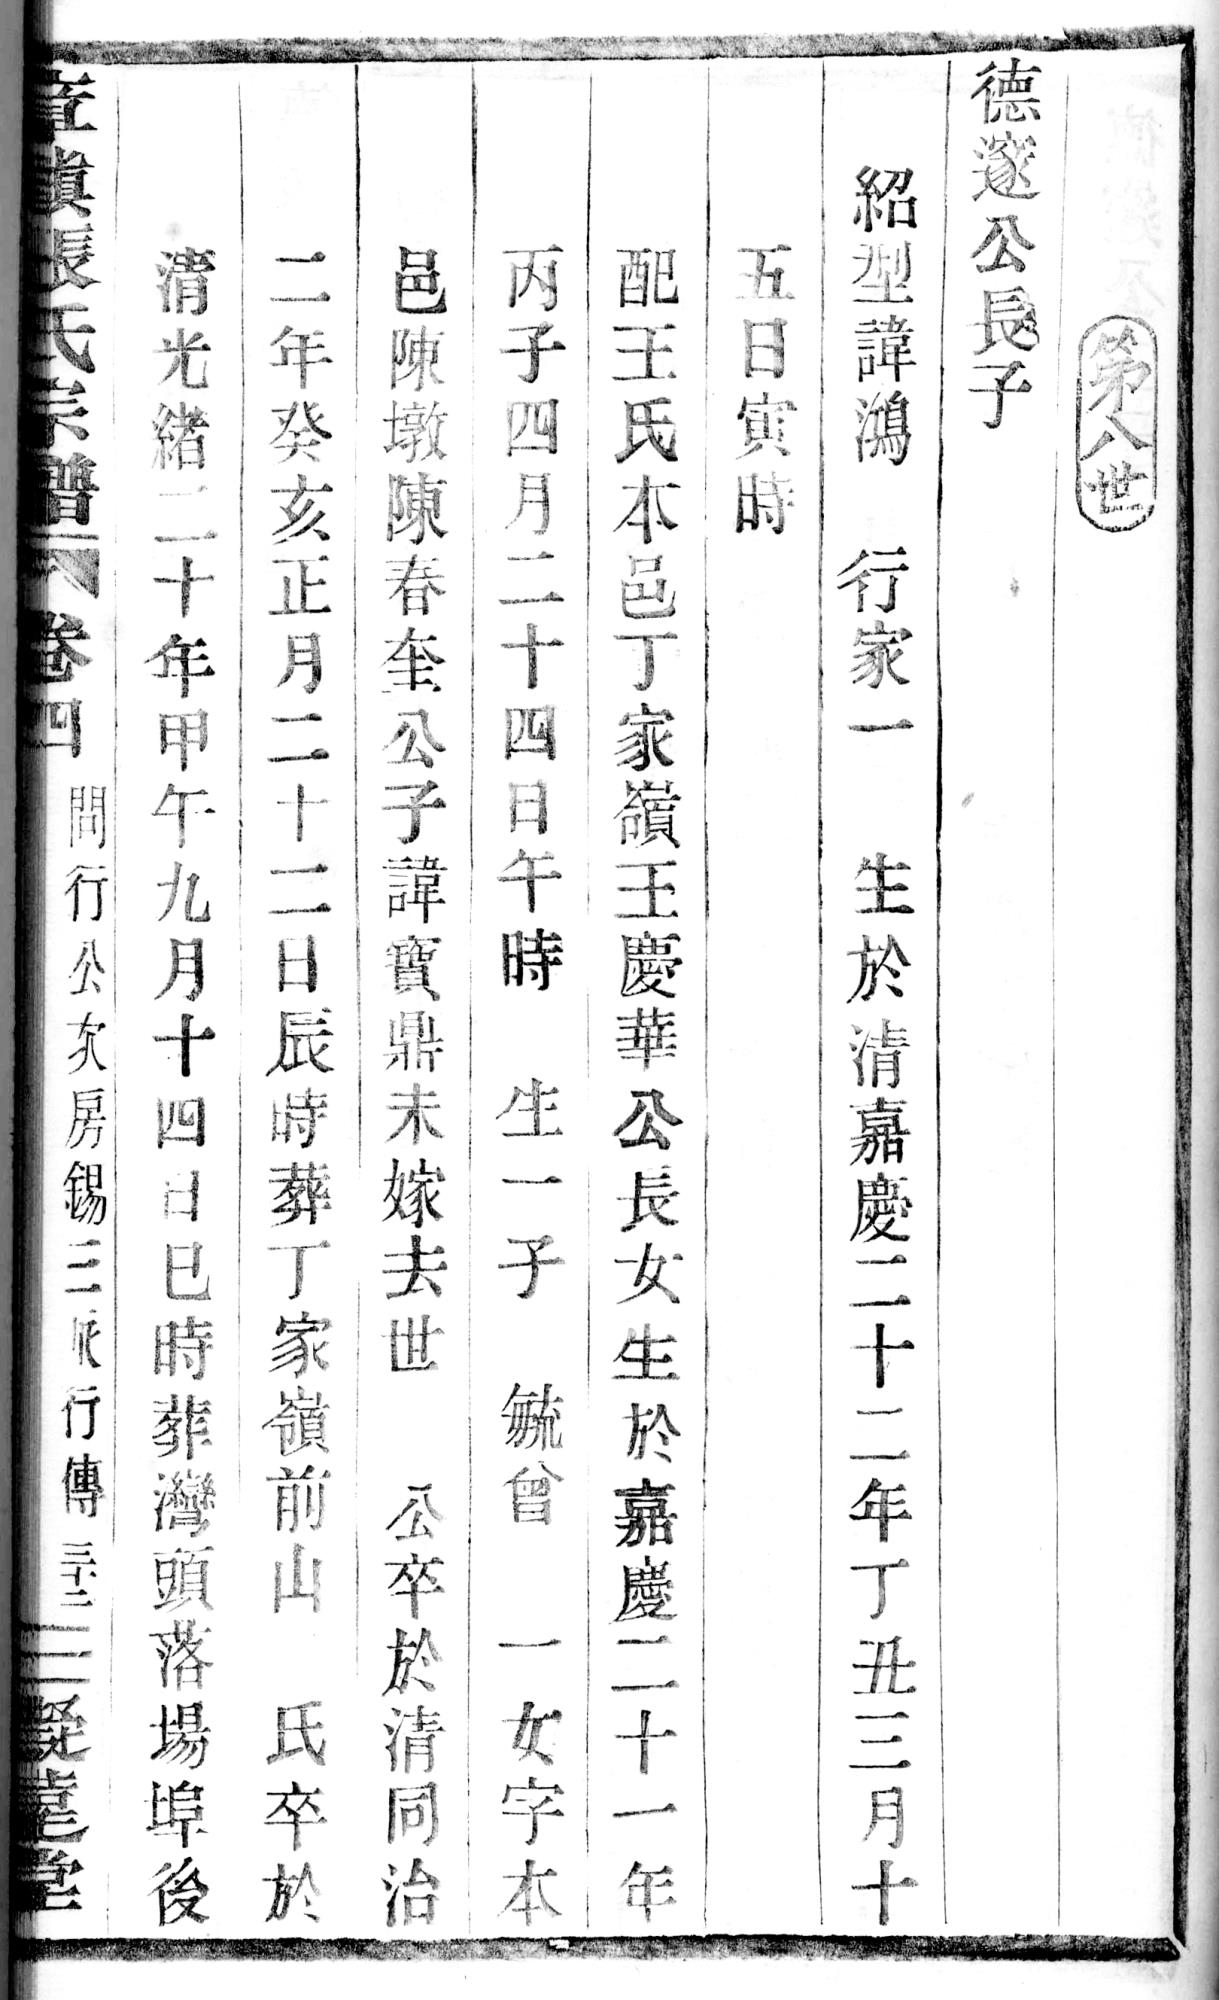 第八世
德邃公長子
紹型諱鴻　行家一　生於清嘉慶二十二年丁丑三月十
五日寅時
配王氏本邑丁家嶺王慶華公長女生於嘉慶二十一年
丙子四月二十四日午時　生一子　毓曾　一女字本
邑陳墩陳春奎公子諱寶鼎未嫁去世　公卒於清同治
二年癸亥正月二十二日辰時葬丁家嶺前山　氏卒於
清光緒二十年甲午九月十四日巳時葬灣頭落場埠後
張氏宗譜　卷四　問行公次房錫三派行傳　三十二　凝薳堂